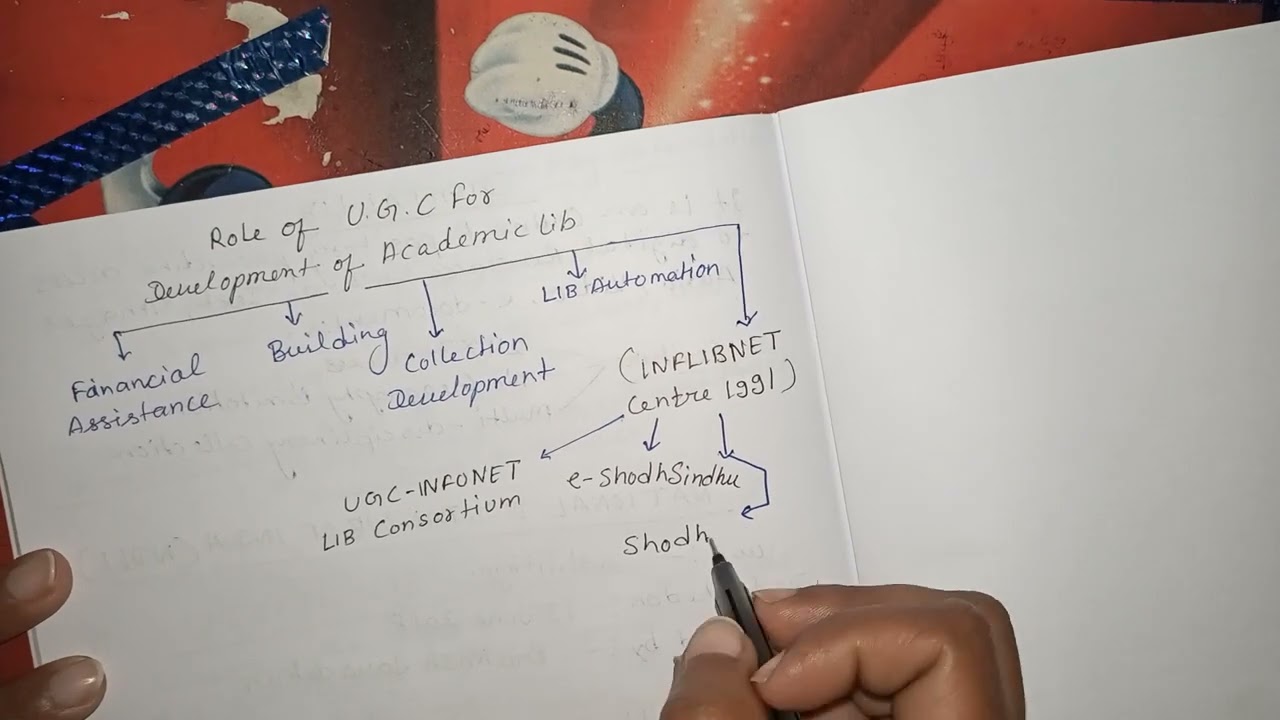 Role of U.G.C for
Development of Academic Lib
Fànancial
Assistance
Building
Collection
Development
LIB Automation
(INFLIBNET
Centre 1991)
UGC-INFONET
LIB Consortium
e-ShodhSindhu
Shodh